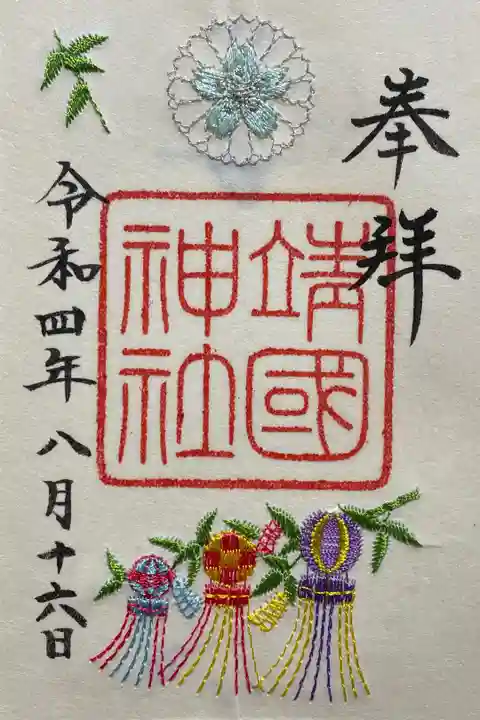 奉拜
靖國
神社
令和四年八月十六日